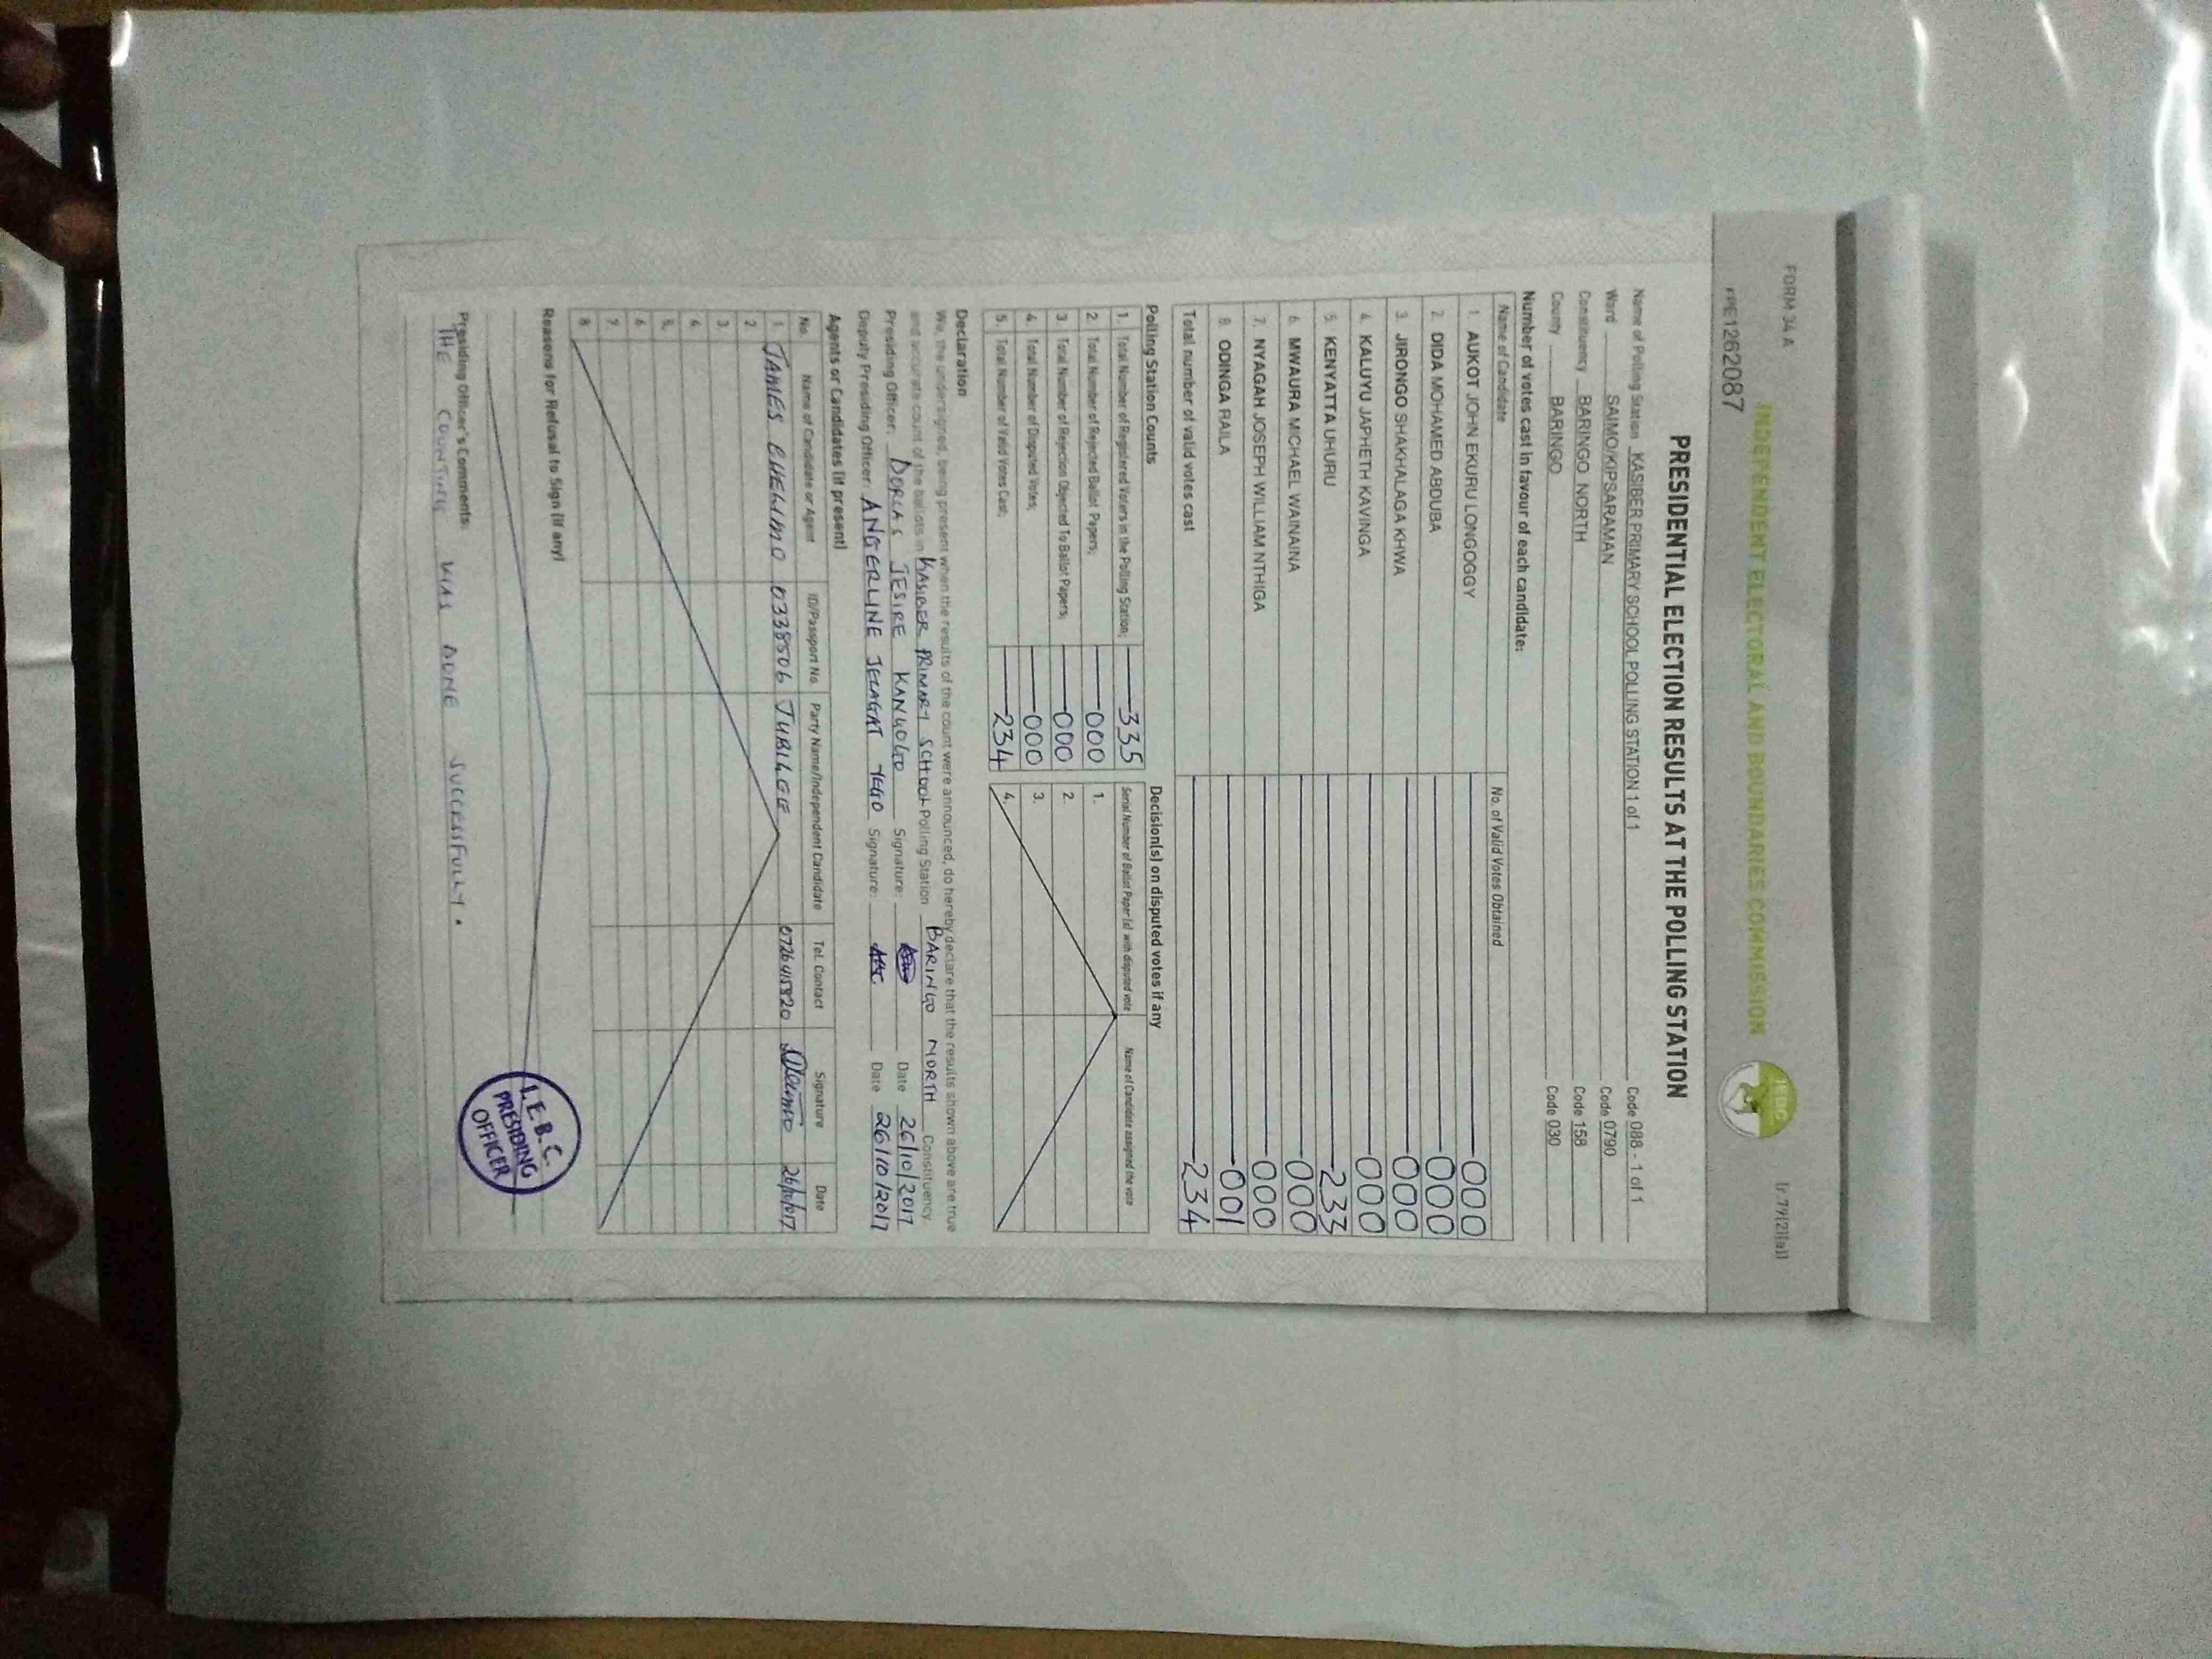 FORM 34 A
[r.79(2)(a)]
INDEPENDENT ELECTORAL AND BOUNDARIES COMMISSION
IEBC
FPE1262087
PRESIDENTIAL ELECTION RESULTS AT THE POLLING STATION
Name of Polling Station KASIBER PRIMARY SCHOOL POLLING STATION 1 of 1 Code 088 - 1 of 1
Ward SAIMO/KIPSARAMAN Code 0790
Constituency BARINGO NORTH Code 158
County BARINGO Code 030
Number of votes cast in favour of each candidate:
Name of Candidate No. of Valid Votes Obtained
1. AUKOT JOHN EKURU LONGOGGY 000
2. DIDA MOHAMED ABDUBA 000
3. JIRONGO SHAKHALAGA KHWA 000
4. KALUYU JAPHETH KAVINGA 000
5. KENYATTA UHURU 233
6. MWAURA MICHAEL WAINAINA 000
7. NYAGAH JOSEPH WILLIAM NTHIGA 000
8. ODINGA RAILA 001
Total number of valid votes cast 234
Polling Station Counts
1. Total Number of Registered Voters in the Polling Station; 335
2. Total Number of Rejected Ballot Papers; 000
3. Total Number of Rejection Objected To Ballot Papers; 000
4. Total Number of Disputed Votes; 000
5. Total Number of Valid Votes Cast; 234
Decision(s) on disputed votes if any
Serial Number of Ballot Paper (s) with disputed vote Name of Candidate assigned the vote
1.
2.
3.
4.
Declaration
We, the undersigned, being present when the results of the count were announced, do hereby declare that the results shown above are true
and accurate count of the ballots in KASIBER PRIMARY SCHOOL Polling Station BARINGO NORTH Constituency
Presiding Officer: DORCAS JESIRE KANGOGO Signature: Date 26/10/2017
Deputy Presiding Officer: ANGERLINE JELAGAT YEGO Signature: Date 26/10/2017
Agents or Candidates (if present)
No. Name of Candidate or Agent ID/Passport No. Party Name/Independent Candidate Tel. Contact Signature Date
1. JAMES CHELIMO 0338506 JUBILEE 26/10/017
2
3.
4
5.
6
7.
8
Reasons for Refusal to Sign (if any)
Presiding Officer's Comments:
THE COUNTING WAS DONE SUCCESSFULLY.
I.E.B.C.
PRESIDING
OFFICER